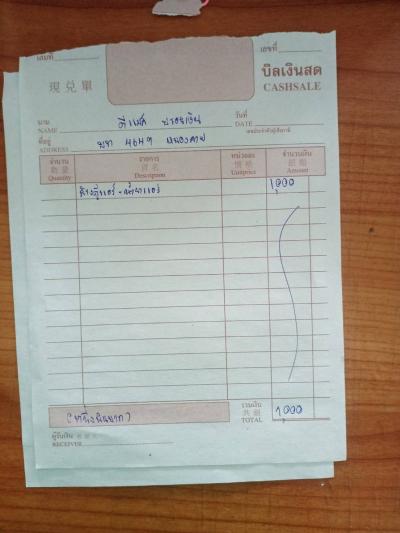 เล่มที่ เลขที่
現兌單 บิลเงินสด
CASHSALE
นาม วันที่
NAME ดีแมค DATE
เลขประจำตัวผู้เสียภาษี
ที่อยู่
ADDRESS 4649 หนองคาย
จำนวน รายการ หน่วยละ จำนวนเงิน
數量 貨名 價格 銀額
Quantity Description Unitprice Amount
1,000
รวมเงิน
共銀
(หนึ่งพันบาท) TOTAL 1,000
ผู้รับเงิน
RECEIVER